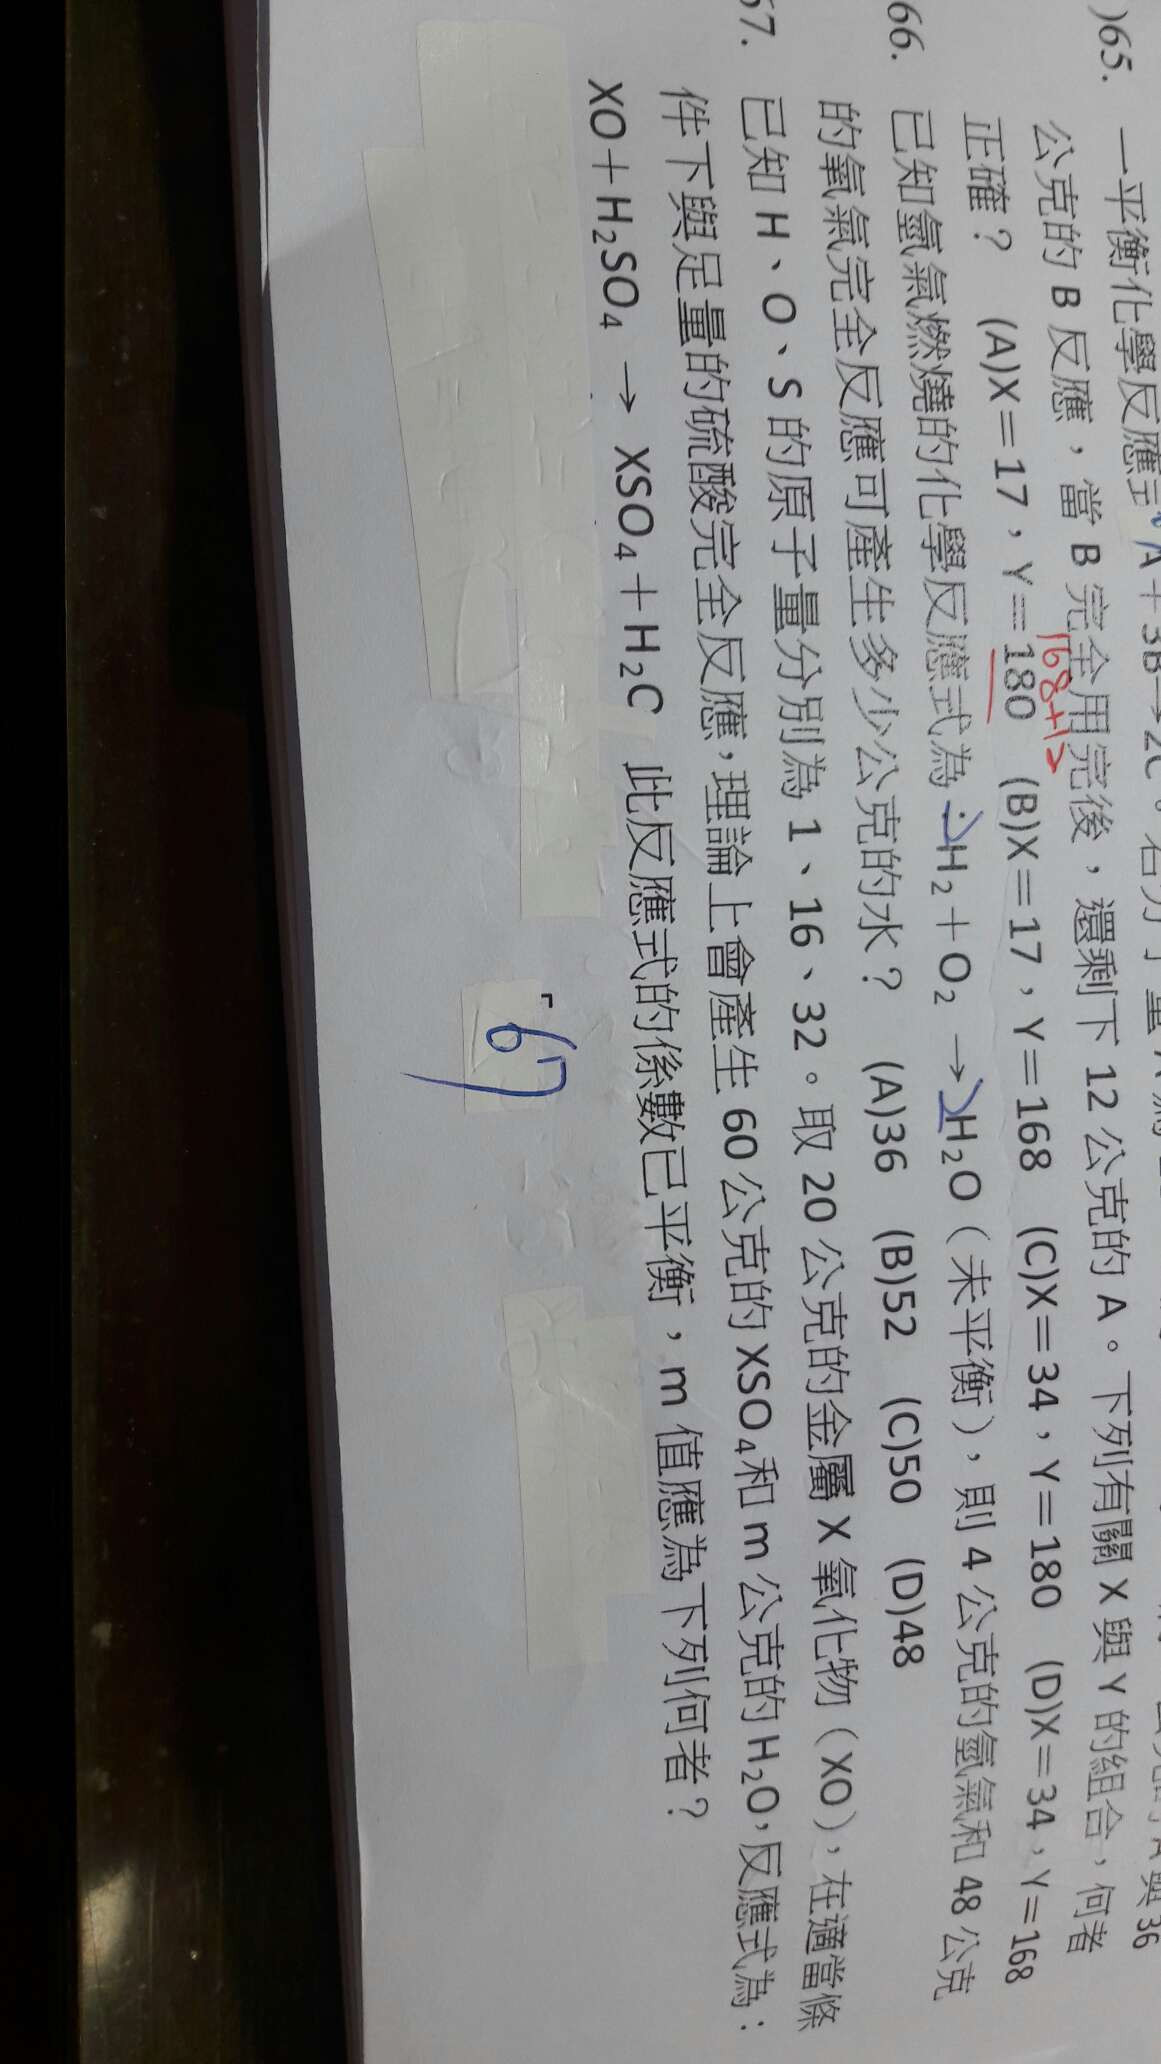 )65. 一平衡化學反應 A＋3B→2C。若分子量A
公克的 B 反應，當 B 完全用完後，還剩下 12 公克的 A。下列有關 X 與 Y 的組合，何者
正確？ (A)X＝17，Y＝180 (B)X＝17，Y＝168 (C)X＝34，Y＝180 (D)X＝34，Y＝168
168+12
66. 已知氫氣燃燒的化學反應式為：2H₂＋O₂ →2H₂O（未平衡），則 4 公克的氫氣和 48 公克
的氧氣完全反應可產生多少公克的水？ (A)36 (B)52 (C)50 (D)48
67. 已知 H、O、S 的原子量分別為 1、16、32。取 20 公克的金屬 X 氧化物（XO），在適當條
件下與足量的硫酸完全反應，理論上會產生 60 公克的 XSO₄和 m 公克的 H₂O，反應式為：
XO＋H₂SO₄ → XSO₄＋H₂C 此反應式的係數已平衡，m 值應為下列何者？
67